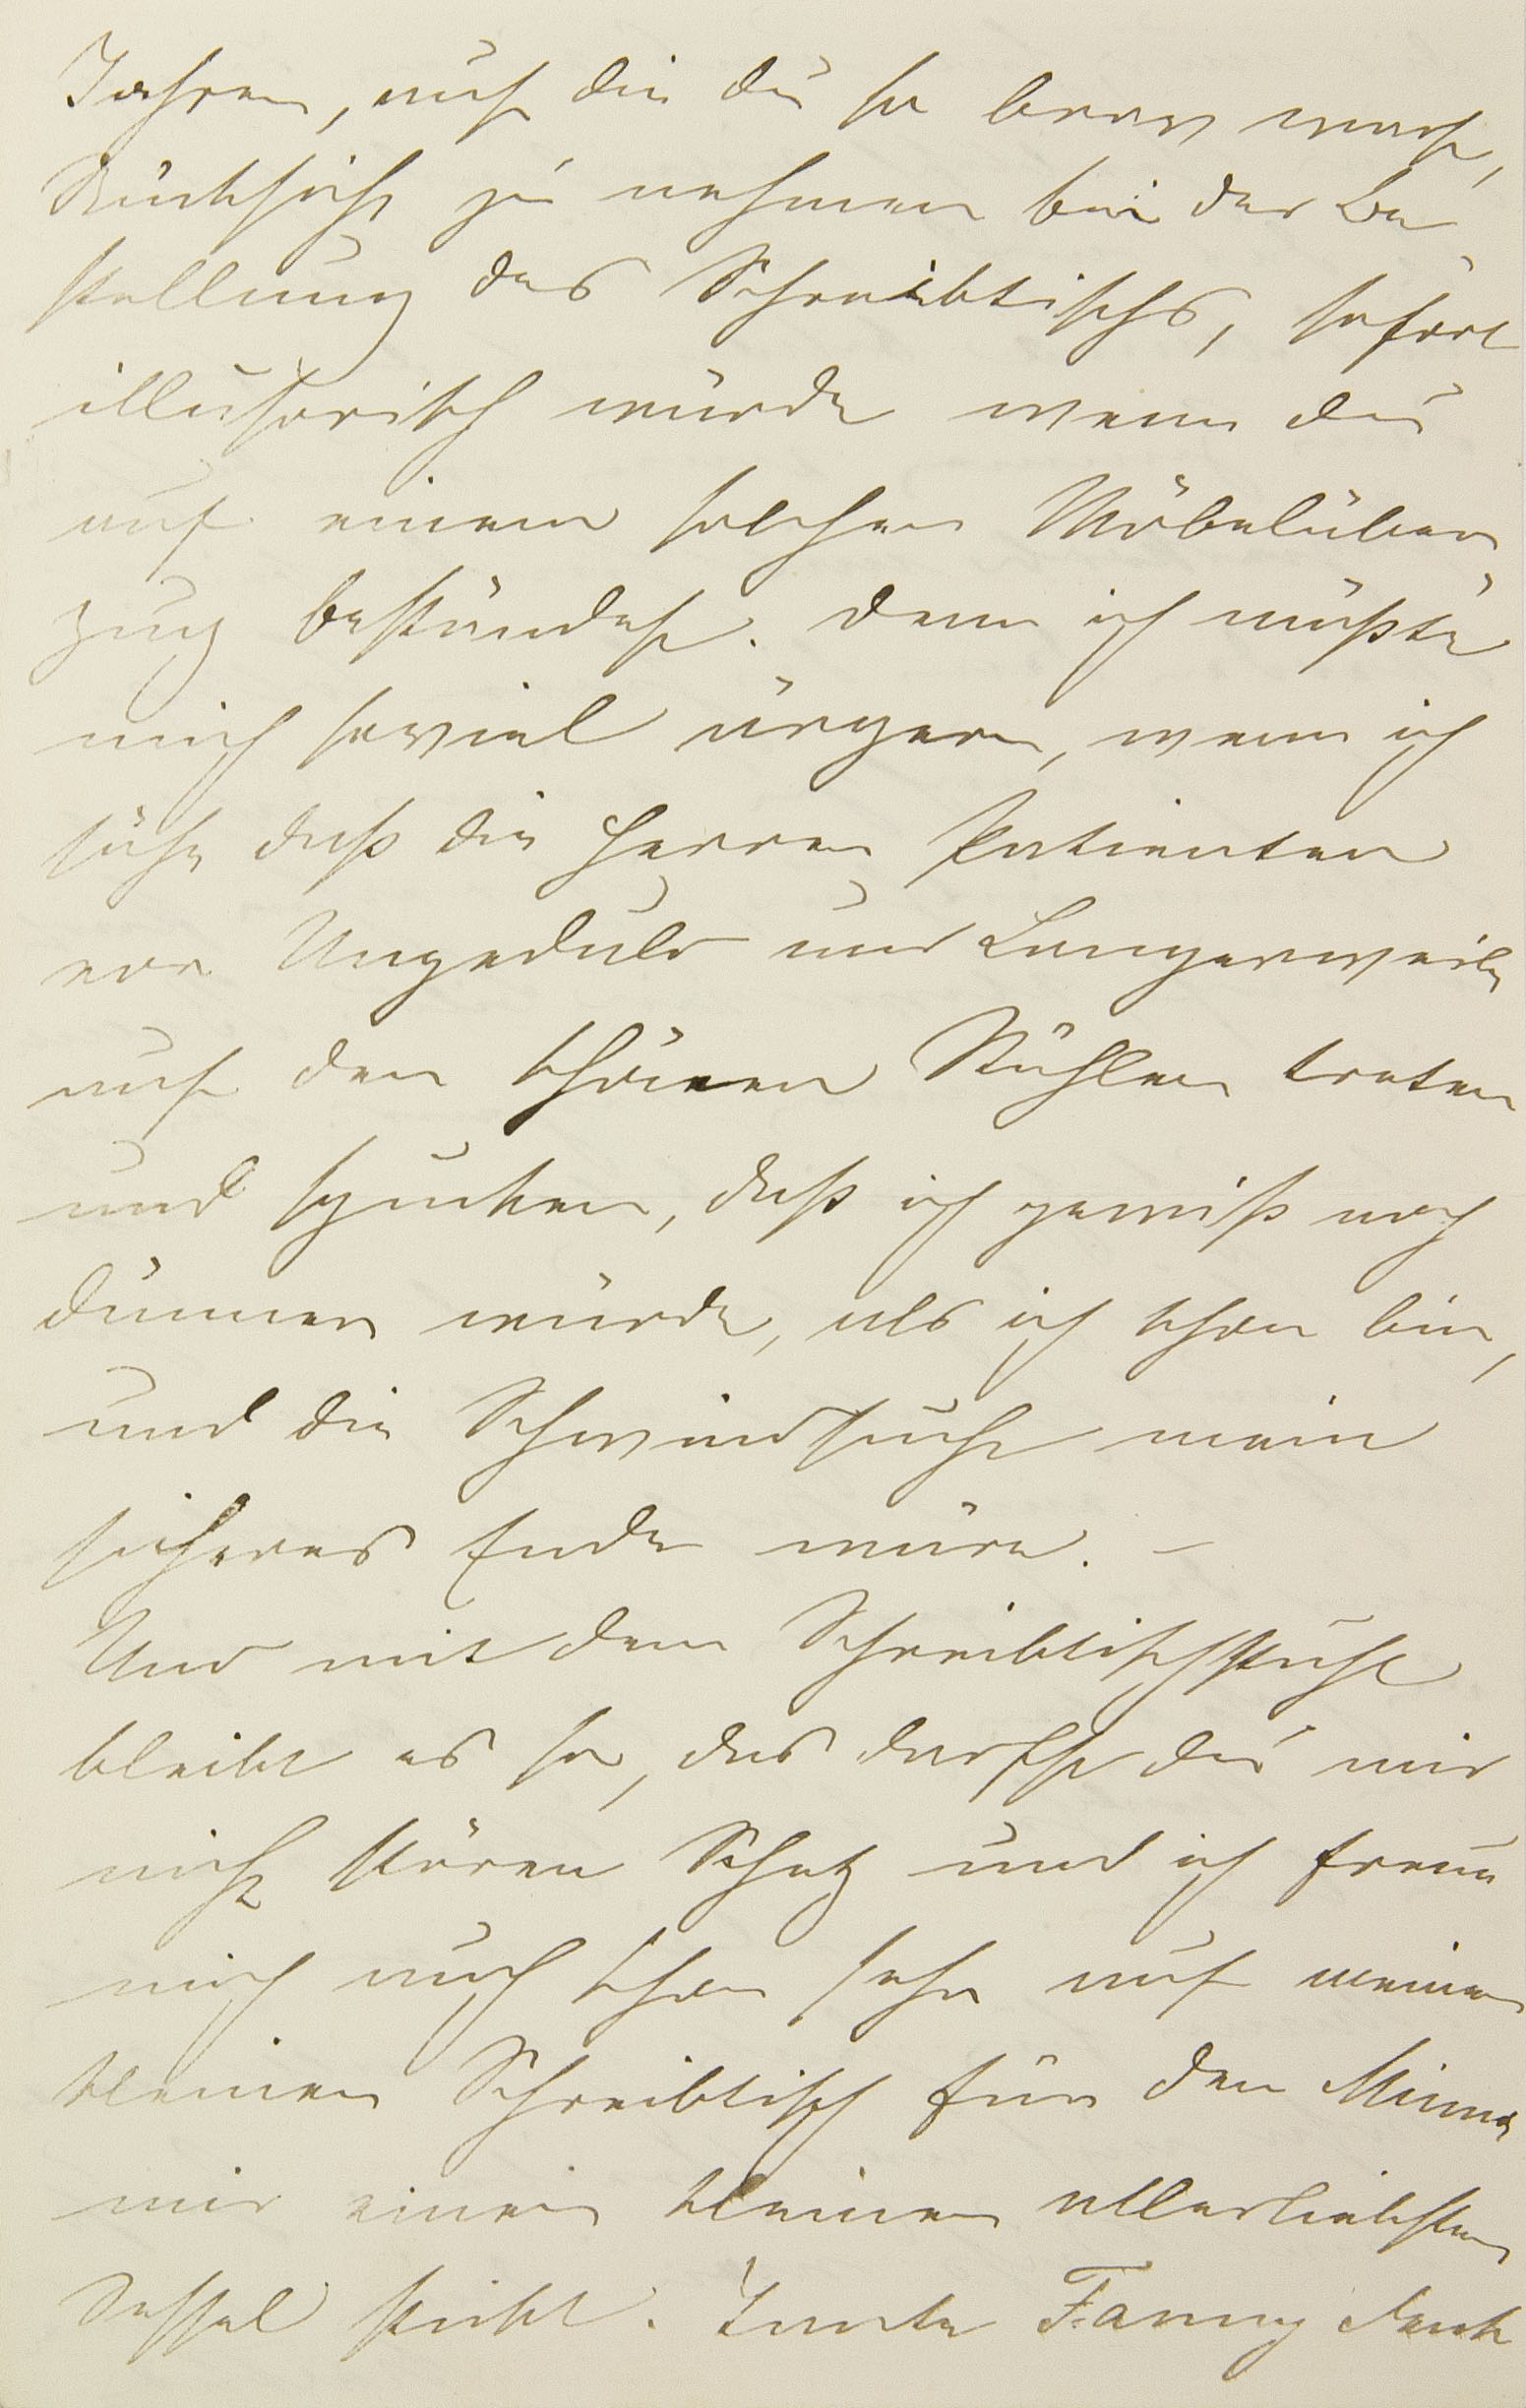 Jahren, auf die du so brav warst,
Rücksicht zu nehmen bei der Be
stellung des Schreibtischs, sofort
illusorisch würde wenn du
auf einem solchen Möbelüber
zug beständest. Denn ich müßte
mich soviel ärgern, wenn ich
sähe daß die Herren Patienten
vor Ungeduld und Langerweile
auf den schönen Stühlen treten
und spucken, daß ich gewiß noch
dünner würde, als ich schon bin,
und die Schwindsucht mein
sicheres Ende wäre. –
Und mit dem Schreibtischstuhl
bleibt es so, das darfst du mir
nicht stören Schatz und ich freue
mich auch schon sehr auf meinen
kleinen Schreibtisch für den Minna
mir einen kleinen allerliebsten
Sessel stickt. Tante Fanny denk